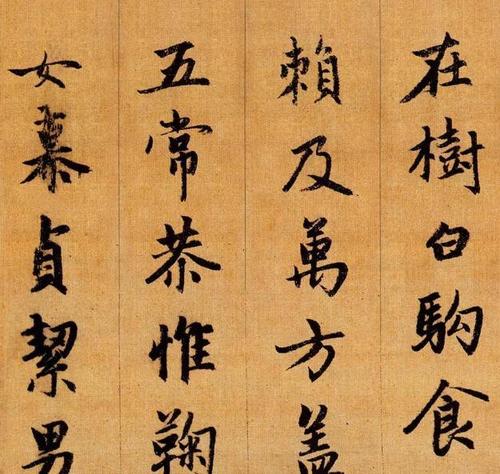 在樹白駒食
賴及萬方盖
五常恭惟鞠
女慕貞絜男